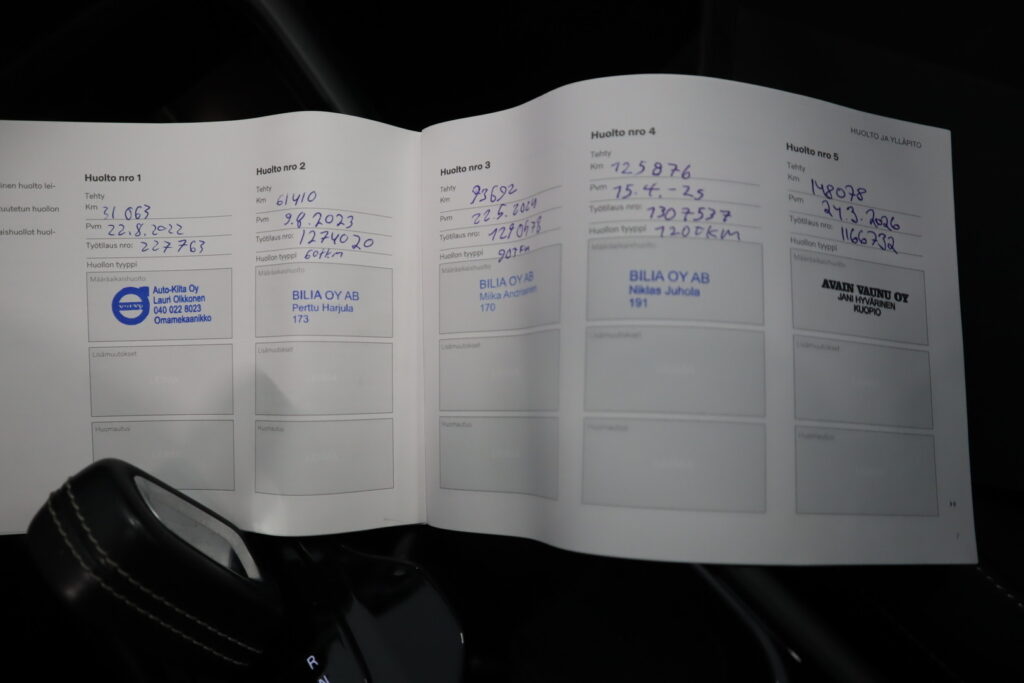 HUOLTO JA YLLÄPITO
inen huolto lei-
tuutetun huollon
aishuollot huol-
Huolto nro 1
Tehty
Km 31 063
Pvm 22.8.2022
Työtilaus nro: 227763
Huollon tyyppi
Määräaikaishuolto
VOLVO
Auto-Kilta Oy
Lauri Olkkonen
040 022 8023
Omamekaanikko
Lisämuutokset
Huomautus
Huolto nro 2
Tehty
Km 61410
Pvm 9.8.2023
Työtilaus nro: 1274020
Huollon tyyppi 60tkm
Määräaikaishuolto
BILIA OY AB
Perttu Harjula
173
Lisämuutokset
Huomautus
Huolto nro 3
Tehty
Km 93692
Pvm 22.5.2024
Työtilaus nro:
Huollon tyyppi 90tkm
Määräaikaishuolto
BILIA OY AB
Miika
170
Lisämuutokset
Huomautus
Huolto nro 4
Tehty
Km 125876
Pvm 15.4.-25
Työtilaus nro: 1307537
Huollon tyyppi 120tkm
Määräaikaishuolto
BILIA OY AB
Niklas Juhola
191
Lisämuutokset
Huomautus
Huolto nro 5
Tehty
Km 148078
Pvm 24.3.2026
Työtilaus nro: 1166732
Huollon tyyppi
Määräaikaishuolto
AVAIN VAUNU OY
JANI HYVÄRINEN
KUOPIO
Lisämuutokset
Huomautus
7
R
N